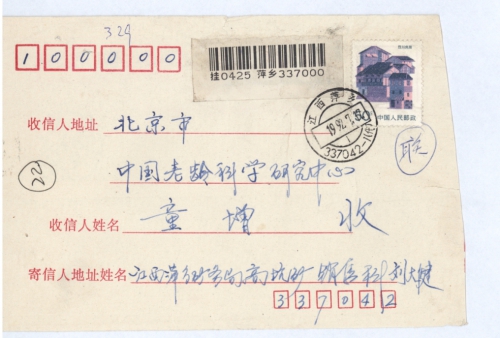 324
100000
桂0425 萍乡337000
中国人民邮政
江西萍乡
1992
337042
收信人地址 北京市
中国老龄科学研究中心
22
收信人姓名 童增 收
寄信人地址姓名 江西萍乡 高坑 销售科 刘大健
337042